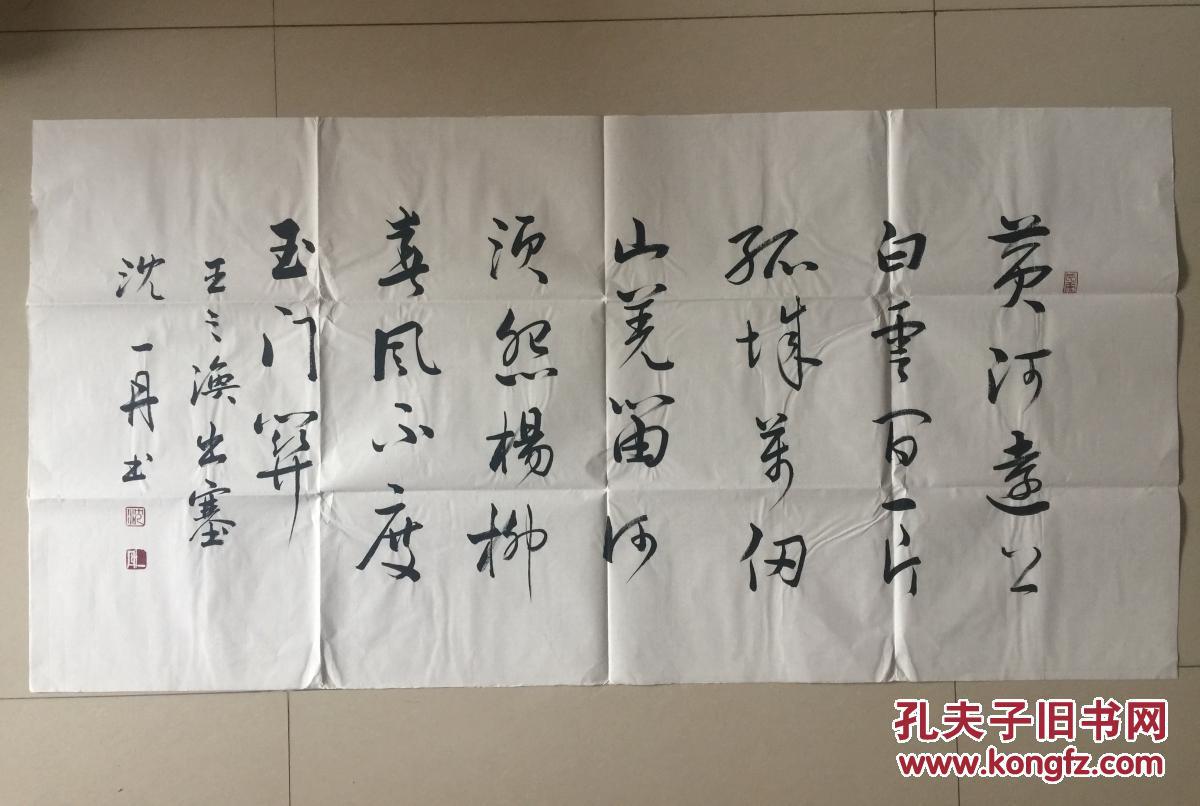 黄河遠上
白雲間一片
孤城萬仞
山羌笛何
須怨楊柳
春風不度
玉門関
王之渙出塞
沈一丹书
孔夫子旧书网
www.kongfz.com